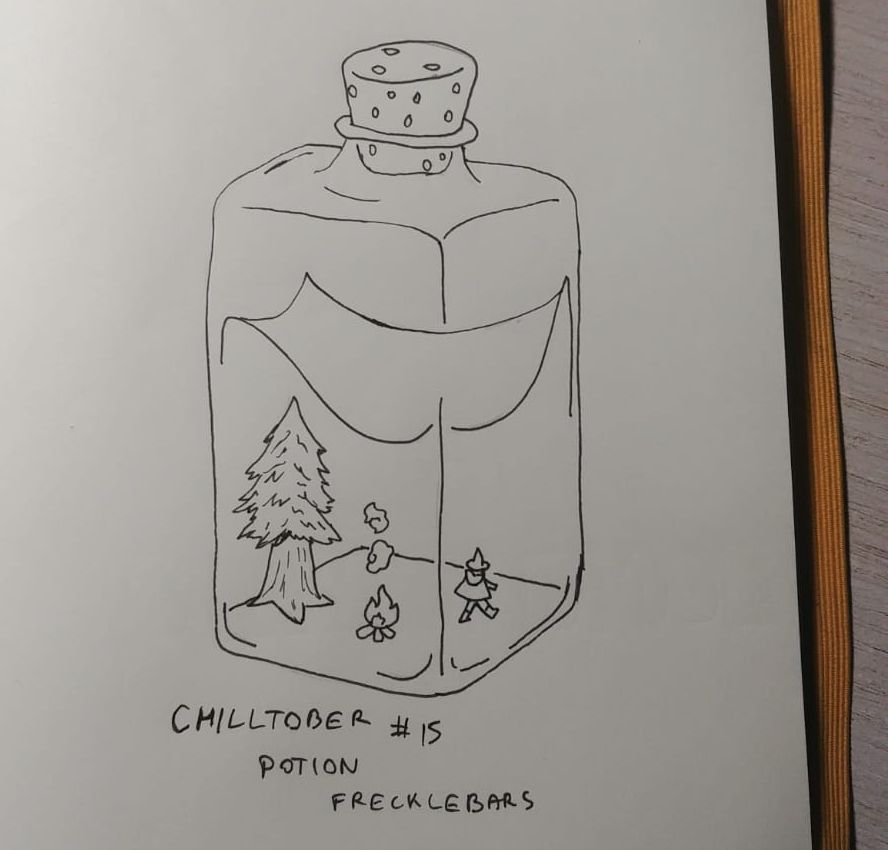 CHILLTOBER #15
POTION
FRECKLEBARS